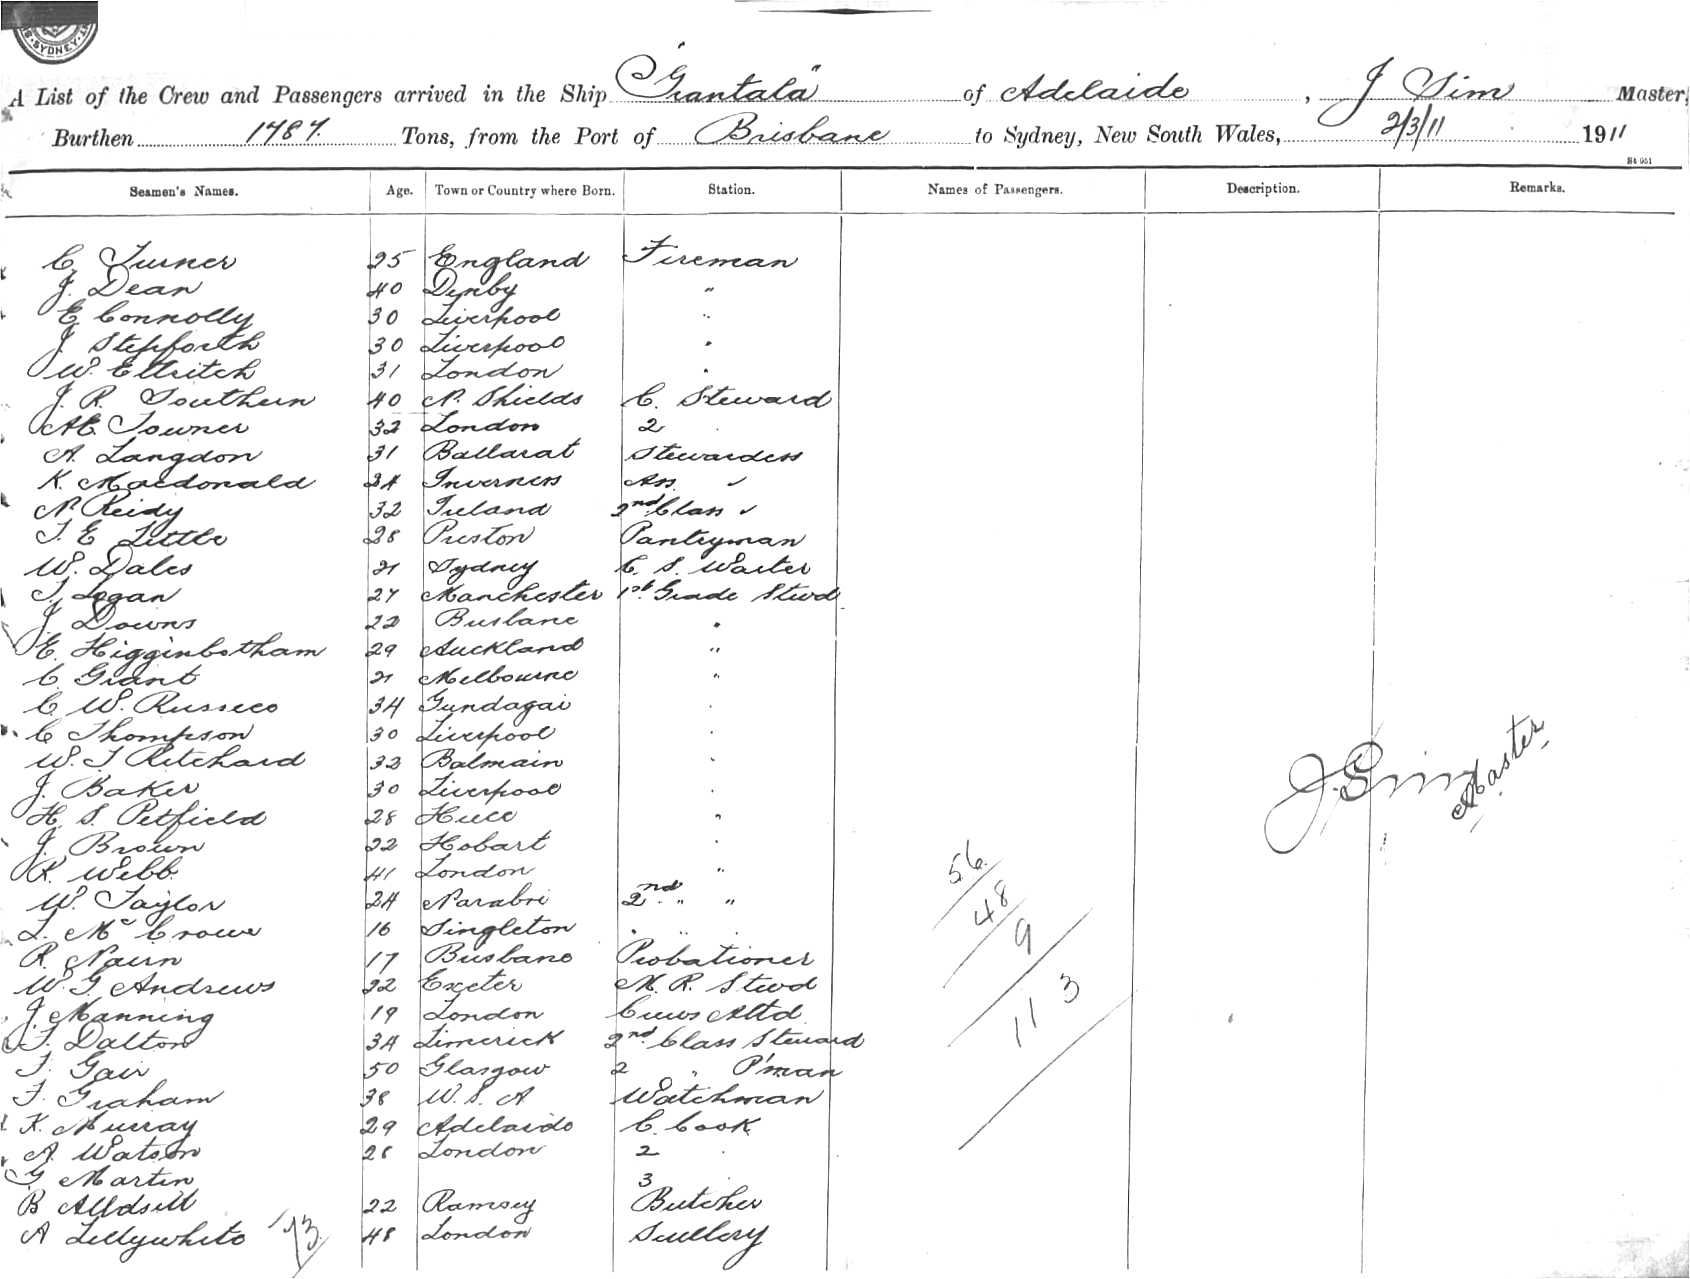 SYDNEY
A List of the Crew and Passengers arrived in the Ship "Grantala" of Adelaide, J Sim Master,
Burthen 1484. Tons, from the Port of Brisbane to Sydney, New South Wales, 2/3/11 1911
St 951
Seamen's Names. Age. Town or Country where Born. Station. Names of Passengers. Description. Remarks.
C. Turner 25 England Fireman
J. Dean 40 Denby "
E Connolly 30 Liverpool "
J Stepforth 30 Liverpool "
W. Ettritch 31 London "
J. R. Southern 40 N. Shields C. Steward
AE. Towner 32 London 2 "
A. Langdon 31 Ballarat Stewardess
K. Macdonald 34 Inverness Ass. ✓
N Reidy 32 Ireland 2nd Class ✓
T. E Little 28 Preston Pantryman
W. Dales 21 Sydney C. S. Waiter
T. Logan 27 Manchester 1st Grade Stwd
J Downs 22 Brisbane "
E. Higginbotham 29 Auckland "
C. Grant 21 Melbourne "
C W. Russell 34 Gundagai "
C Thompson 30 Liverpool "
W. T Pritchard 32 Balmain "
J. Baker 30 Liverpool "
H. S. Petfield 28 Hull "
J Brown 22 Hobart "
R. Webb 41 London "
W. Taylor 24 Narabri 2nd " "
L. McCrowe 16 Singleton " " "
R. Nairn 17 Brisbane Probationer
W. G. Andrews 22 Exeter M. R. Stwd
J. Manning 19 London Crews Attd
T. Dalton 34 Limerick 2nd Class Steward
T. Gair 50 Glasgow 2 " P'man
F. Graham 38 U. S. A Watchman
K. Murray 29 Adelaide C. Cook
A. Watson 28 London 2 "
G Martin 3
B Alldsitt 22 Ramsey Butcher
A Lillywhite 48 London Scullery
73
J. Sim Master
56
48
9
113